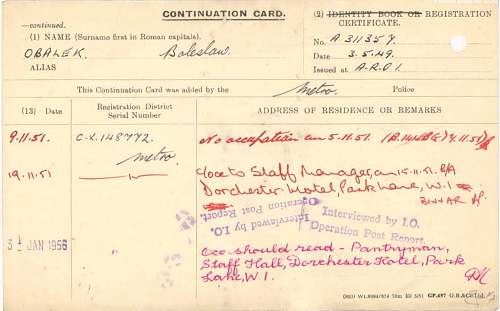 CONTINUATION CARD.
—continued.
(2) IDENTITY BOOK OR REGISTRATION
CERTIFICATE.
(1) NAME (Surname first in Roman capitals).
OBALEK. Boleslaw.
No. A 311357.
ALIAS
Date 3.5.49.
Issued at A.R.O1.
This Continuation Card was added by the Metro. Police
(13) Date
Registration District
Serial Number
ADDRESS OF RESIDENCE OR REMARKS
9.11.51. C.X.148772. No occupation on 5.11.51.
Metro.
19.11.51 Occ to Staff Manager, on 15.11.51.
Dorchester Hotel, Park Lane, W.1
Interviewed by I.O.
Operation Post Report.
Interviewed by I.O.
Operation Post Report.
31 JAN 1956 " Occ should read - Pantryman,
Staff Hall, Dorchester Hotel, Park
Lane, W.1.
GP.697